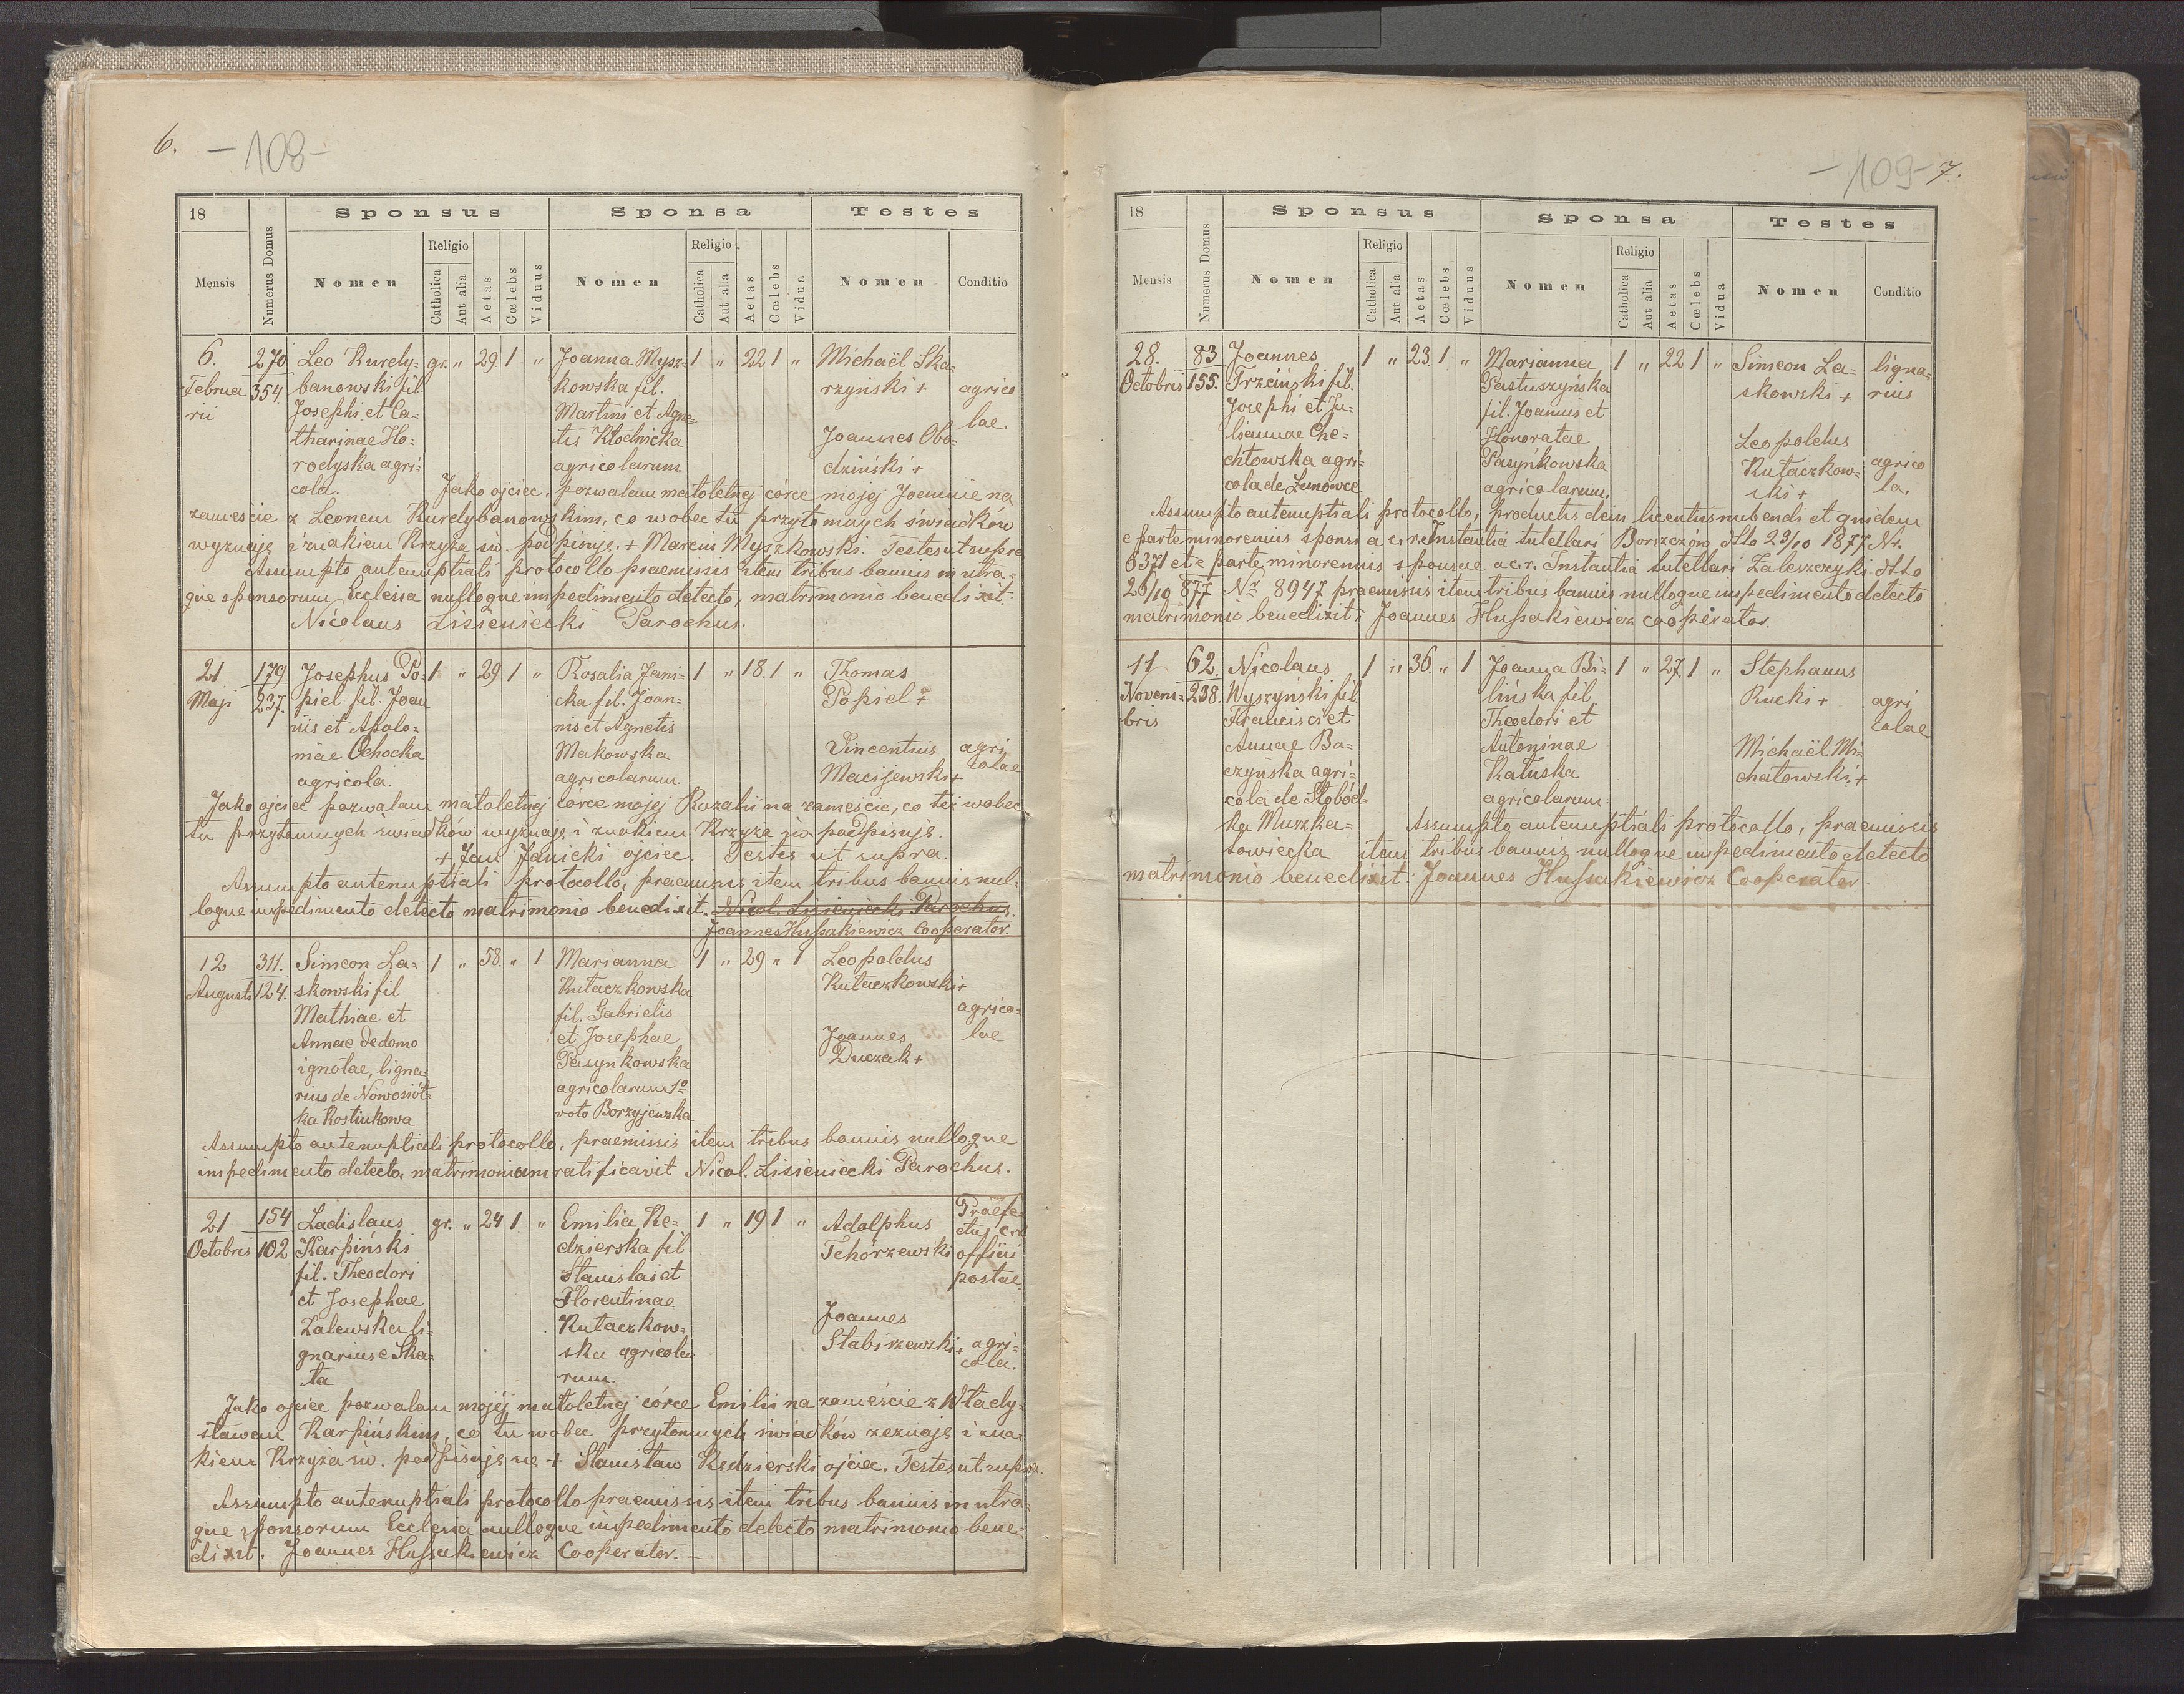 6. -108-
18
Mensis
Numerus Domus
Sponsus
Nomen
Religio
Catholica
Aut alia
Aetas
Cœlebs
Viduus
Sponsa
Nomen
Religio
Catholica
Aut alia
Aetas
Cœlebs
Vidua
Testes
Nomen
Conditio
6.
Februa
rii
270
354.
Leo Kurdy-
banowski fil.
Josephi et Ca-
tharinae Ho-
rodyska agri-
cola.
gr. „ 29. 1 „
Joanna Mysz-
kowska fil.
Martini et Agne-
tis Kłodnicka
agricolarum
1 „ 22 1 „
Michaël Ska-
rzyński +
Joannes Obo-
dziński +
agrico
lae.
Jako ojciec, pozwalam małoletnej córce mojej Joannie na
zamęście z Leonem Kurdybanowskim, co wobec tu przytomnych świadków
wyznaję i znakiem Krzyża św. podpisuję. + Marcin Myszkowski. Testes ut supra
Assumpto antenuptiali protocollo praemissis item tribus bannis in utra-
que sponsorum Ecclesia nulloque impedimento detecto, matrimonio benedixit.
Nicolaus Lisieniecki Parochus.
21
Maji
179
237.
Josephus Po-
piel fil. Joan
nis et Apolo-
niae Ochocka
agricola.
1 „ 29 1 „
Rosalia Jani-
cka fil. Joan-
nis et Agnetis
Makowska
agricolarum.
1 „ 18. 1 „
Thomas
Popiel +
Vincentius
Macijewski +
agri
colae
Jako ojciec pozwalam małoletnej córce mojej Rozalii na zamęście, co też wobec
tu przytomnych świadków wyznaję i znakiem Krzyża św. podpisuję.
+ Jan Janicki ojciec. Testes ut supra.
Assumpto antenuptiali protocollo, praemissis item tribus bannis nul-
loque impedimento detecto matrimonio benedixit. Nicol. Lisieniecki Parochus.
Joannes Hussakiewicz Cooperator.
12
Augusti
311.
124.
Simeon La-
skowski fil
Mathiae et
Annae de domo
ignotae, ligna-
rius de Nowosiół-
ka Kostiukowa
1 „ 58. „ 1
Marianna
Kutaczkowska
fil. Gabrielis
et Josephae
Pasynkowska
agricolarum 1o
voto Borzyjewska
1 „ 29 „ 1
Leopoldus
Kutaczkowski +
Joannes
Duczak +
agrico-
lae
Assumpto antenuptiali protocollo, praemissis item tribus bannis nulloque
impedimento detecto, matrimonium ratificavit Nicol. Lisieniecki Parochus.
21
Octobris
154
102
Ladislaus
Karpiński
fil. Theodori
et Josephae
Zalewska li-
gnarius e Ska-
ła
gr. „ 24 1 „
Emilia Ke-
dzierska fil.
Stanislai et
Florentinae
Kutaczkow-
ska agricola
rum.
1 „ 19 1 „
Adolphus
Tchórzewski
Joannes
Stabiszewski +
Praefe-
ctus c.r.
officii
postae
agri-
cola.
Jako ojciec pozwalam mojéj małoletnej córce Emilii na zamęście z Włady-
sławem Karpińskim, co tu wobec przytomnych świadków zeznaję i zna-
kiem Krzyża św. podpisuję się + Stanisław Kędzierski ojciec. Testes ut supra.
Assumpto antenuptiali protocollo praemissis item tribus bannis in utra-
que sponsorum Ecclesia nulloque impedimento detecto matrimonio bene-
dixit. Joannes Hussakiewicz Cooperator.
-109- 7.
18
Mensis
Numerus Domus
Sponsus
Nomen
Religio
Catholica
Aut alia
Aetas
Cœlebs
Viduus
Sponsa
Nomen
Religio
Catholica
Aut alia
Aetas
Cœlebs
Vidua
Testes
Nomen
Conditio
28.
Octobris
83
155.
Joannes
Trzciński fil.
Josephi et Ju-
liannae Che-
chłowska agri-
cola de Zunowce
1 „ 23. 1 „
Marianna
Pastuszyńska
fil. Joannis et
Honoratae
Pasyńkowska
agricolarum.
1 „ 22 1 „
Simeon La-
skowski +
Leopoldus
Kutaczkow-
ski +
ligna-
rius
agrico
la.
Assumpto antenuptiali protocollo, productis dein licentiis nubendi et quidem
e parte minorennis sponsi a c.r. Instantia tutellari Borszczów dtto 23/10 1877 Nr.
6371 et e parte minorennis sponsae a c.r. Instantia tutellari Zaleszczyki dtto
26/10 877 Nr 8947 praemissis item tribus bannis nulloque impedimento detecto
matrimonio benedixit: Joannes Hussakiewicz cooperator.
11
Novem-
bris
62.
238.
Nicolaus
Wyszyński fil.
Francisci et
Annae Ba-
czyńska agri-
cola de Słobód-
ka Muszka-
towiecka
1 „ 36. „ 1
Joanna Bi-
lińska fil.
Theodori et
Antoninae
Kałuska
agricolarum.
1 „ 27. 1 „
Stephanus
Rucki +
Michaël Mi-
chałowski. +
agri
colae
Assumpto antenuptiali protocollo, praemissis
item tribus bannis nulloque impedimento detecto
matrimonio benedixit. Joannes Hussakiewicz Cooperator.